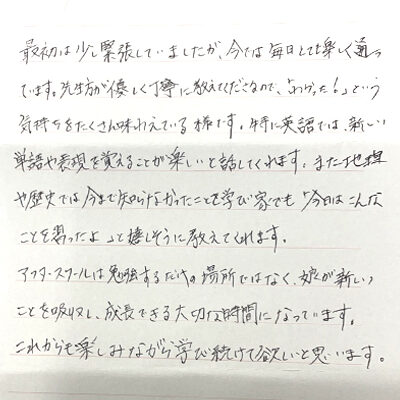 最初は少し緊張していましたが、今では毎日とても楽しく通っ
ています。先生方が優しく丁寧に教えてくださるので、「わかった！」という
気持ちをたくさん味わえている様です。特に英語では、新しい
単語や表現を覚えることが楽しいと話してくれます。また地理
や歴史では今まで知らなかったことを学び家でも「今日はこんな
ことを習ったよ」と嬉しそうに教えてくれます。
アフタースクールは勉強するだけの場所ではなく、娘が新しい
ことを吸収し、成長できる大切な時間になっています。
これからも楽しみながら学び続けて欲しいと思います。